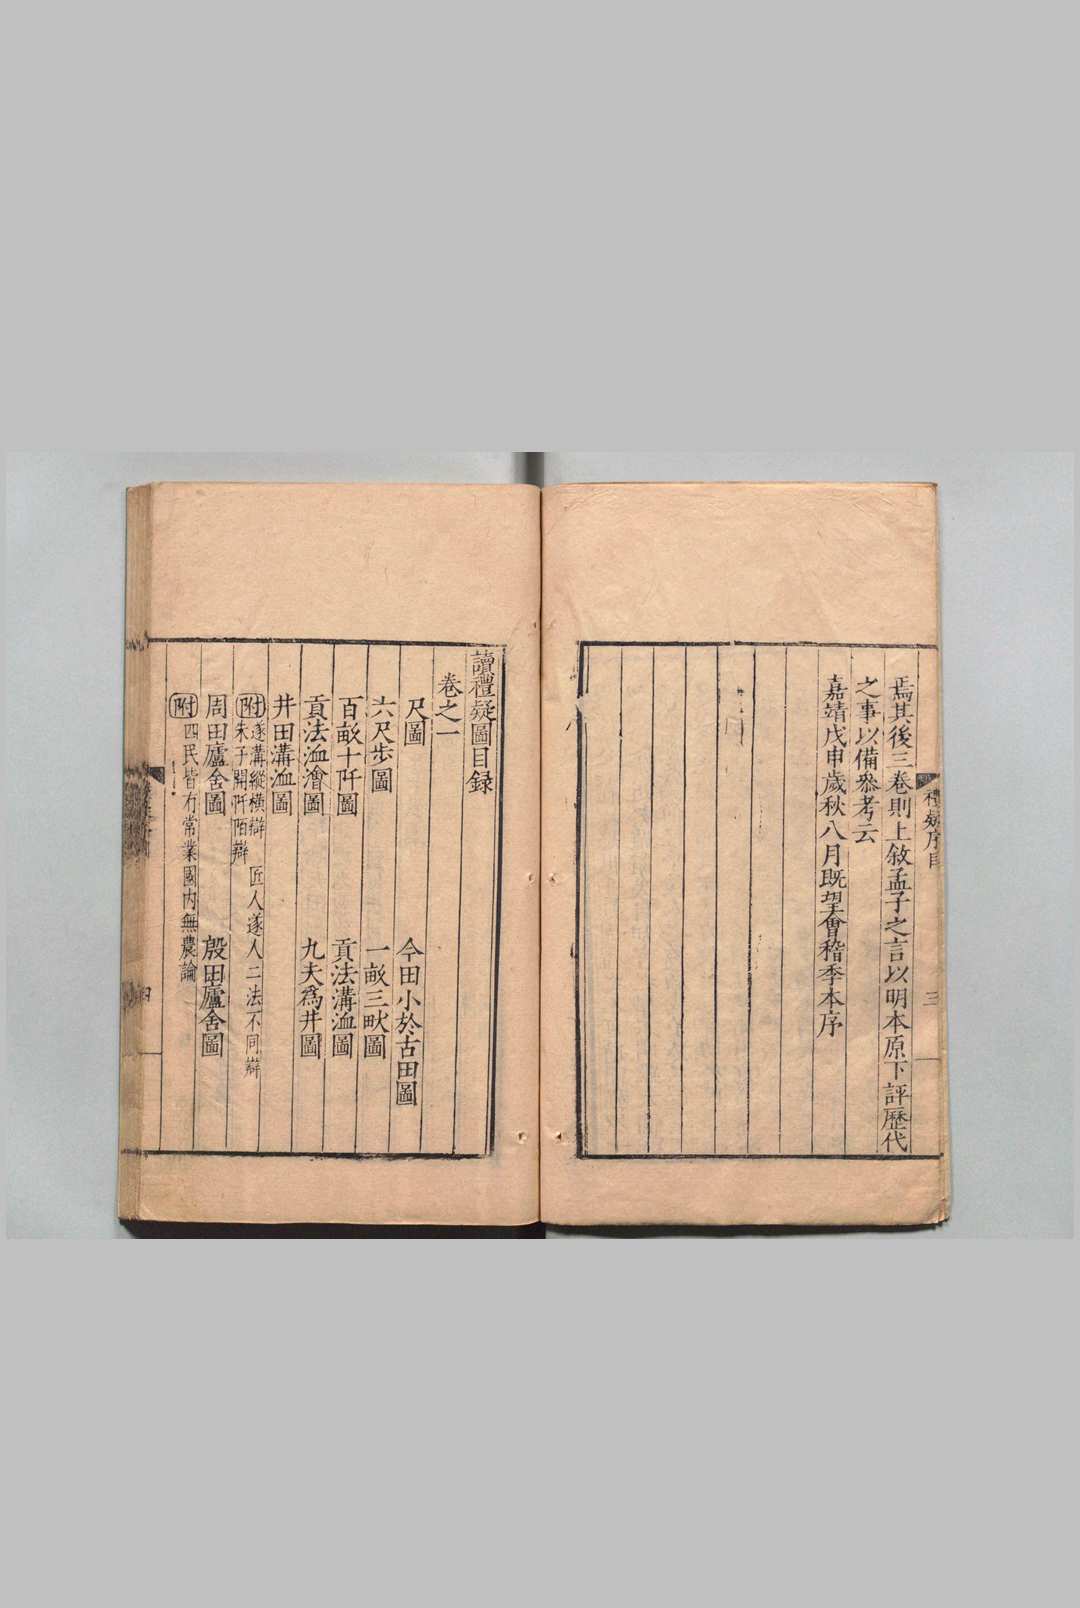 焉其後三卷則上敘孟子之言以明本原下評歷代
之事以備叅考云
嘉靖戊申歲秋八月既望會稽季本序
禮疑序目
三
讀禮疑圖目録
卷之一
尺圖 今田小於古田圖
六尺歩圖 一畝三畎圖
百畝十阡圖 貢法溝洫圖
貢法洫澮圖 九夫爲井圖
井田溝洫圖
附 遂溝縱横辯 匠人遂人二法不同辯
朱子開阡陌辯
周田廬舍圖 殷田廬舍圖
附 四民皆有常業國内無農論
四